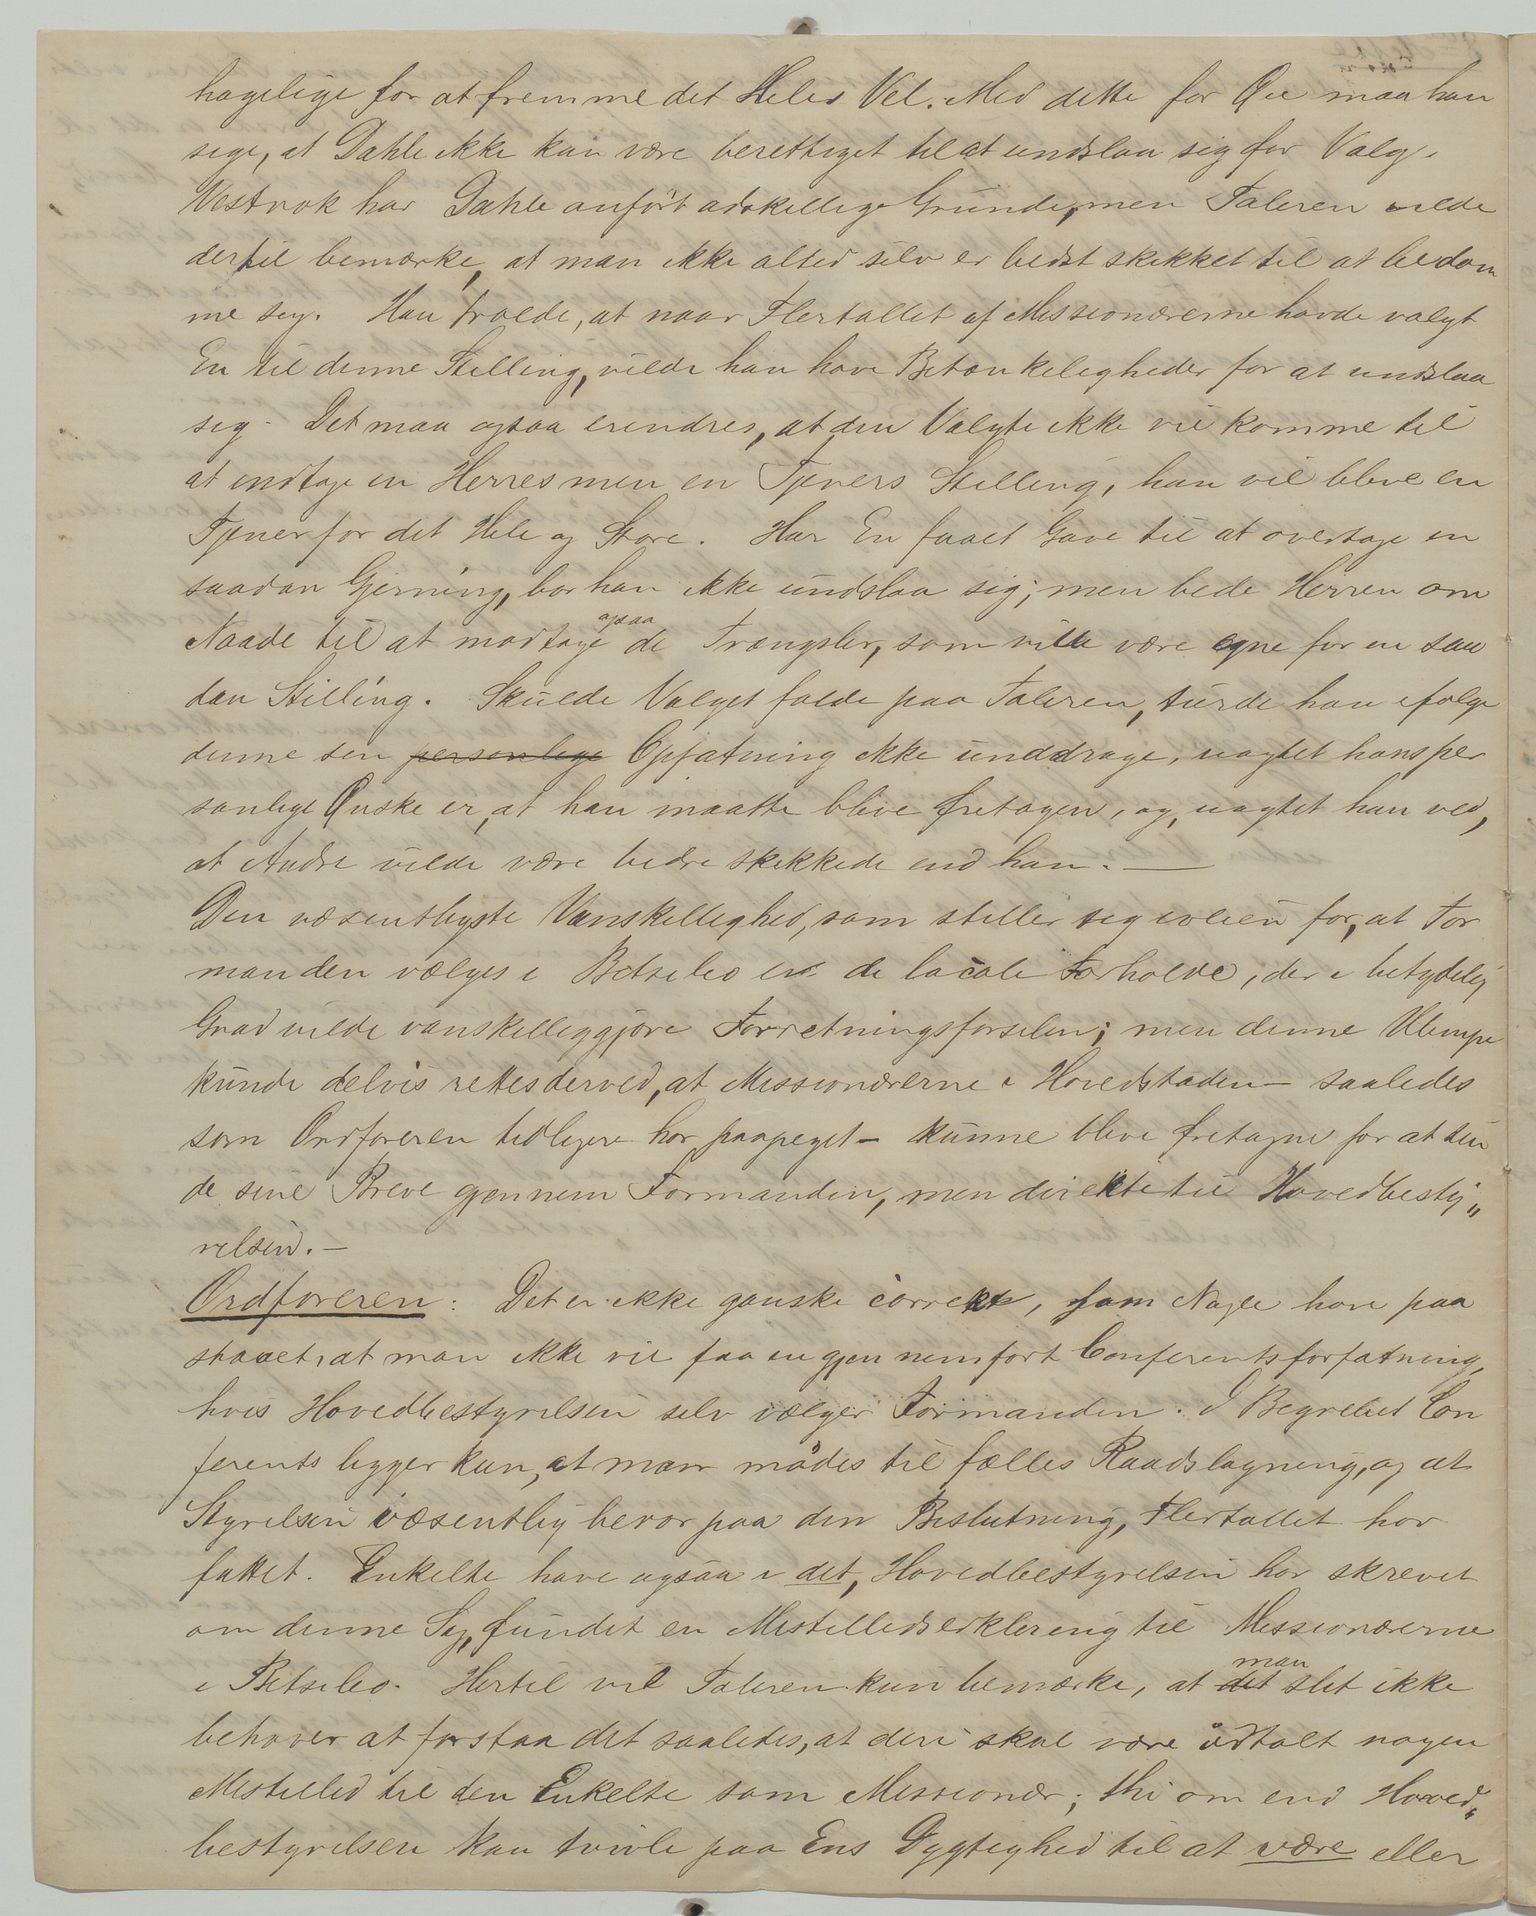 hagelige for at fremme det Heles Vel. Med dette for Øie maa han
sige, at Dahle ikke kan være berettiget til at undslaa sig for Valg.
Vestnok har Dahle anført adskellige Grunde, men Taleren vilde
dertil bemærke, at man ikke altid selv er bedst skikket til at bedøm
me sig. Han troede, at naar Flertallet af Missionærerne havde valgt
En til denne Stilling, vilde han have Betænkeligheder for at undslaa
sig. Det maa ogsaa erindres, at den Valgte ikke vil komme til
at indtage en Herres men en Tjeners Stilling, han vil blive en
Tjener for det Hele og Store. Har En faaet Gave til at overtage en
saadan Gjerning, bør han ikke undslaa sig; men bede Herren om
Naade til at modtage ogsaa de Trængsler, som ville være egne for en saa
dan Stilling. Skulde Valget falde paa Taleren, turde han ifølge
denne sin personlige Opfatning ikke unddrage, uagtet hans per
sonlige Ønske er, at han maatte blive fritagen, og, uagtet han ved,
at Andre vilde være bedre skikkede end han. —
Den væsentligste Vanskellighed, som stiller sig iveien for, at For
manden vælges i Betsileo er de locale Forholde, der i betydelig
Grad vilde vanskelliggjøre Forretningsførselen; men denne Ulempe
kunde delvis rettes derved, at Missionærerne i Hovedstaden – saaledes
som Ordføreren tidligere har paapeget – kunne blive fritagne for at sen
de sine Breve gjennem Formanden, men direkte til Hovedbesty„
relsen. –
Ordføreren: Det er ikke ganske correkt, som Nogle have paa
staaet, at man ikke vil faa en gjennemført Conferentsforfatning,
hvis Hovedbestyrelsen selv vælger Formanden. I Begrebet Con
ferents ligger kun, at man mødes til fælles Raadslagning, og at
Styrelsen væsentlig beror paa den Beslutning, Flertallet har
fattet. Enkelte have ogsaa i det, Hovedbestyrelsen har skrevet
om denne Sag, fundet en Mistillidserklæring til Missionærerne
i Betsileo. Hertil vil Taleren kun bemærke, at det man slet ikke
behøver at forstaa det saaledes, at deri skal være udtalt nogen
Mistillid til den Enkelte som Missionær; thi om end Hoved„
bestyrelsen kan tvivle paa Ens Dygtighed til at være eller